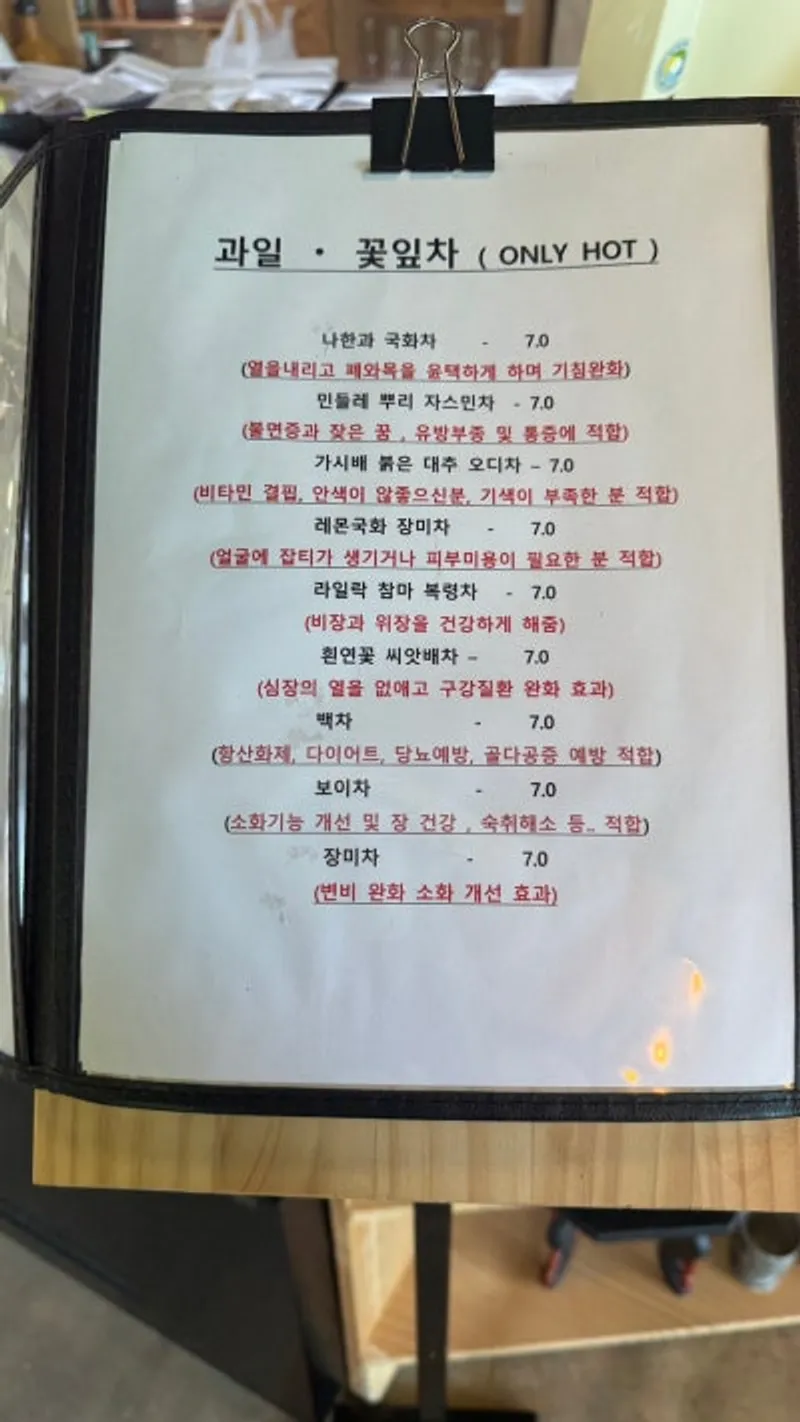 과일 · 꽃잎차 ( ONLY HOT )
나한과 국화차 - 7.0
(열을내리고 폐와목을 윤택하게 하며 기침완화)
민들레 뿌리 자스민차 - 7.0
(불면증과 잦은 꿈 , 유방부종 및 통증에 적합)
가시배 붉은 대추 오디차 – 7.0
(비타민 결핍, 안색이 않좋으신분, 기색이 부족한 분 적합)
레몬국화 장미차 - 7.0
(얼굴에 잡티가 생기거나 피부미용이 필요한 분 적합)
라일락 참마 복령차 - 7.0
(비장과 위장을 건강하게 해줌)
흰연꽃 씨앗배차 – 7.0
(심장의 열을 없애고 구강질환 완화 효과)
백차 - 7.0
(항산화제, 다이어트, 당뇨예방, 골다공증 예방 적합)
보이차 - 7.0
(소화기능 개선 및 장 건강 , 숙취해소 등.. 적합)
장미차 - 7.0
(변비 완화 소화 개선 효과)